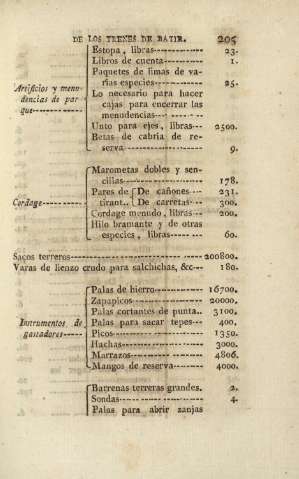 DE LOS TRENES DE BATIR. 205
Estopa, libras 23.
Libros de cuenta 1.
Paquetes de limas de va-
rias especies 25.
Artificios y menu-
dencias de par-
que
Lo necesario para hacer
cajas para encerrar las
menudencias
Unto para ejes, libras 2500.
Betas de cabria de re-
serva 9.
Marometas dobles y sen-
cillas 178.
Cordage
Pares de tirant.. De cañones 231.
De carretas 300.
Cordage menudo, libras 200.
Hilo bramante y de otras
especies, libras 60.
Sacos terreros 200800.
Varas de lienzo crudo para salchichas, &c 180.
Palas de hierro 16700.
Zapapicos 20000.
Palas cortantes de punta.. 3100.
Instrumentos de
gastadores
Palas para sacar tepes 400.
Picos 1350.
Hachas 3000.
Marrazos 4806.
Mangos de reserva 4000.
Barrenas terreras grandes. 2.
Sondas 4.
Palas para abrir zanjas